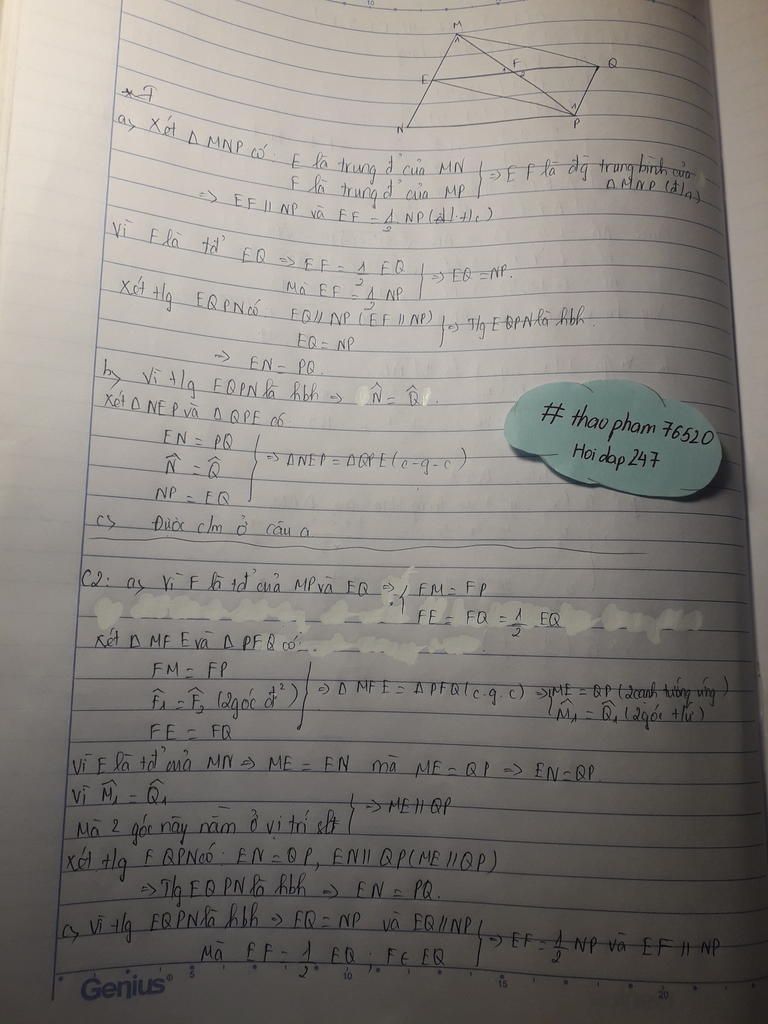 M
F
Q
E
N
P
a, Xét Δ MNP có: E là trung đ' của MN
F là trung đ' của MP
⇒ EF là đg trung bình của Δ MNP (đ/n)
⇒ EF // NP và EF = 1/2 NP (đl. t/c)
Vì F là tđ' EQ ⇒ EF = 1/2 EQ
Mà EF = 1/2 NP
⇒ EQ = NP.
Xét t/g EQPN có: EQ // NP (EF // NP)
EQ = NP
⇒ T/g EQPN là hbh.
⇒ EN = PQ.
b, Vì t/g EQPN là hbh ⇒ N̂ = Q̂.
Xét Δ NEP và Δ QPE có:
EN = PQ
N̂ = Q̂
NP = EQ
⇒ ΔNEP = ΔQPE (c-g-c)
c, Được c/m ở câu a
# thaopham76520
Hoidap247
C2: a, Vì F là tđ' của MP và EQ ⇒ FM = FP
FE = FQ = 1/2 EQ
Xét Δ MFE và Δ PFQ có:
FM = FP
F̂1 = F̂2 (2góc đ²)
FE = FQ
⇒ Δ MFE = Δ PFQ (c.g.c) ⇒ ME = QP (2cạnh tương ứng)
M̂1 = Q̂1 (2góc t/ứ)
Vì E là tđ' của MN ⇒ ME = EN mà ME = QP ⇒ EN = QP
Vì M̂1 = Q̂1
Mà 2 góc này nằm ở vị trí slt
⇒ ME // QP
Xét t/g EQPN có: EN = QP, EN // QP (ME // QP)
⇒ T/g EQPN là hbh ⇒ EN = PQ.
c, Vì t/g EQPN là hbh ⇒ EQ = NP và EQ // NP
Mà EF = 1/2 EQ ; F ∈ EQ
⇒ EF = 1/2 NP và EF // NP
Genius
5 10 15 20